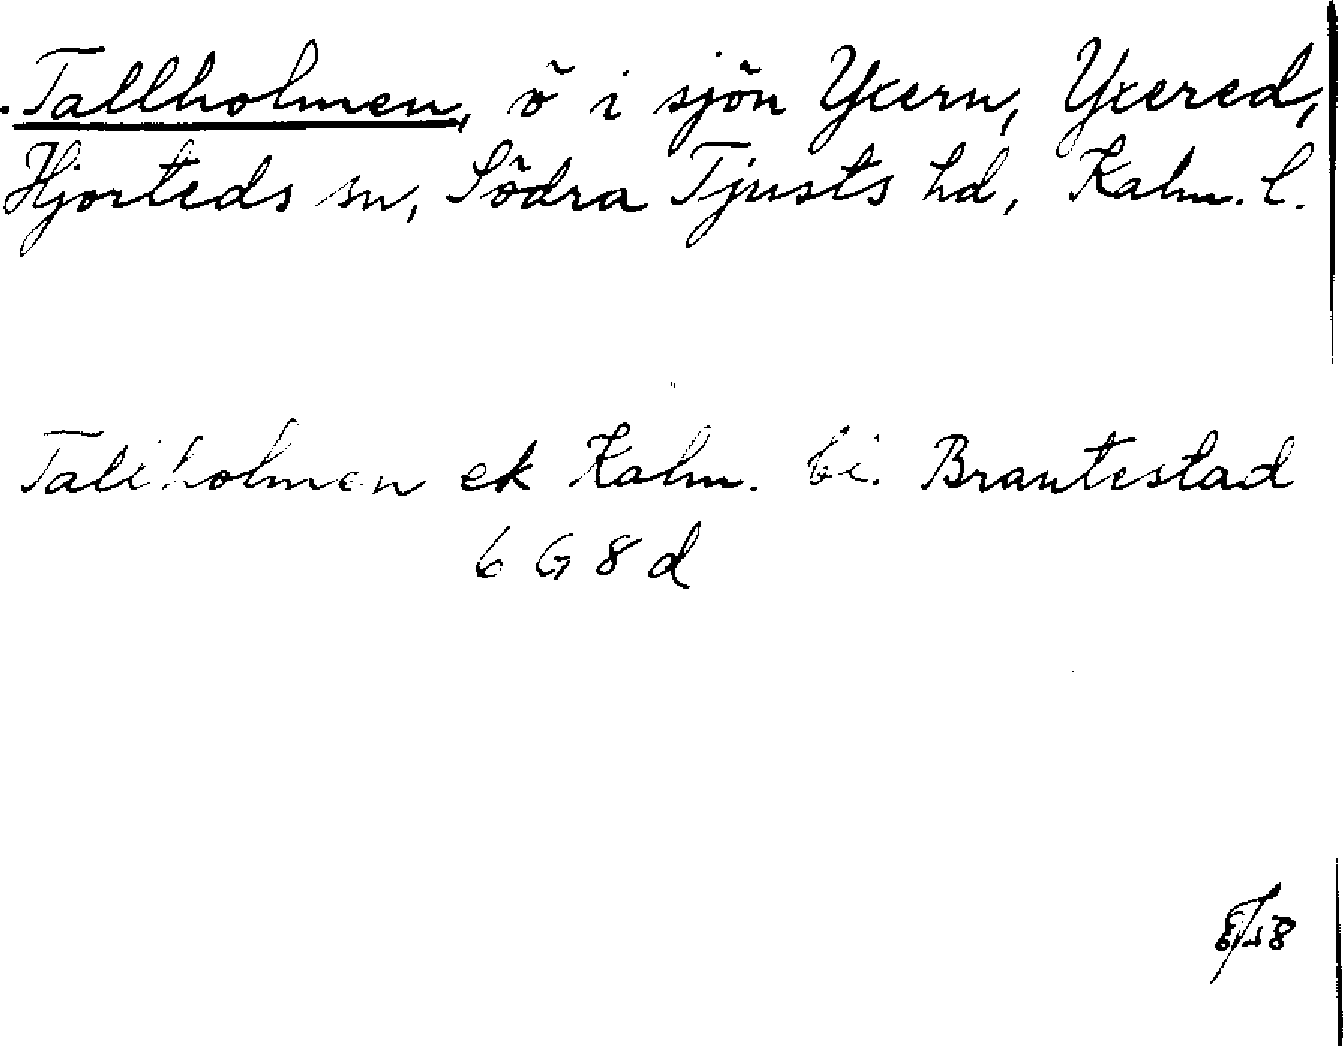 Tallholmen, ö i sjön Yxern, Yxered,
Hjorteds sn, Södra Tjusts hd, Kalm. l.
Tallholmen ek Kalm. bi. Brantestad
6 G 8 d